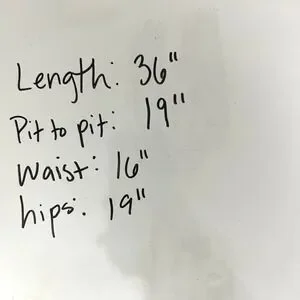 Length: 36"
Pit to pit: 19"
Waist: 16"
hips: 19"